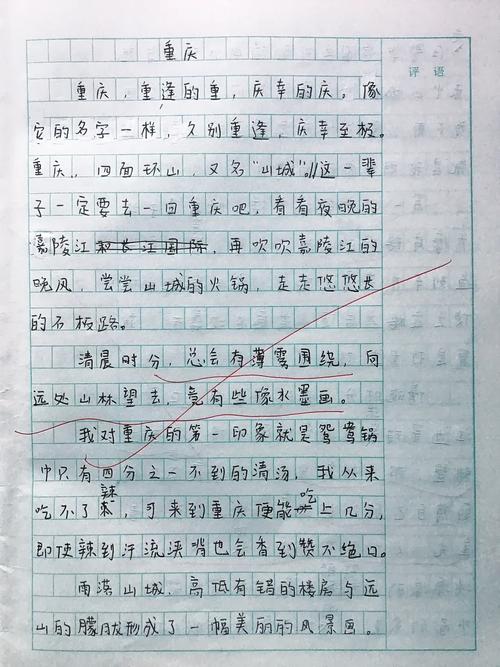 重庆
评语
重庆，重逢的重，庆幸的庆。像
它的名字一样，久别重逢，庆幸至极。
重庆，四面环山，又名“山城”。//这一辈
子一定要去一回重庆吧，看看夜晚的
嘉陵江和长江国际，再吹吹嘉陵江的
晚风，尝尝山城的火锅，走走悠悠长
的石板路。
清晨时分，总会有薄雾围绕，向
远处山林望去，竟有些像水墨画。
我对重庆的第一印象就是鸳鸯锅
中只有四分之一不到的清汤，我从来
吃不了辣，可来到重庆便能吃上几分，
即使辣到汗流浃背也会香到赞不绝口。
雨落山城，高低有错的楼房与远
山的朦胧形成了一幅美丽的风景画。